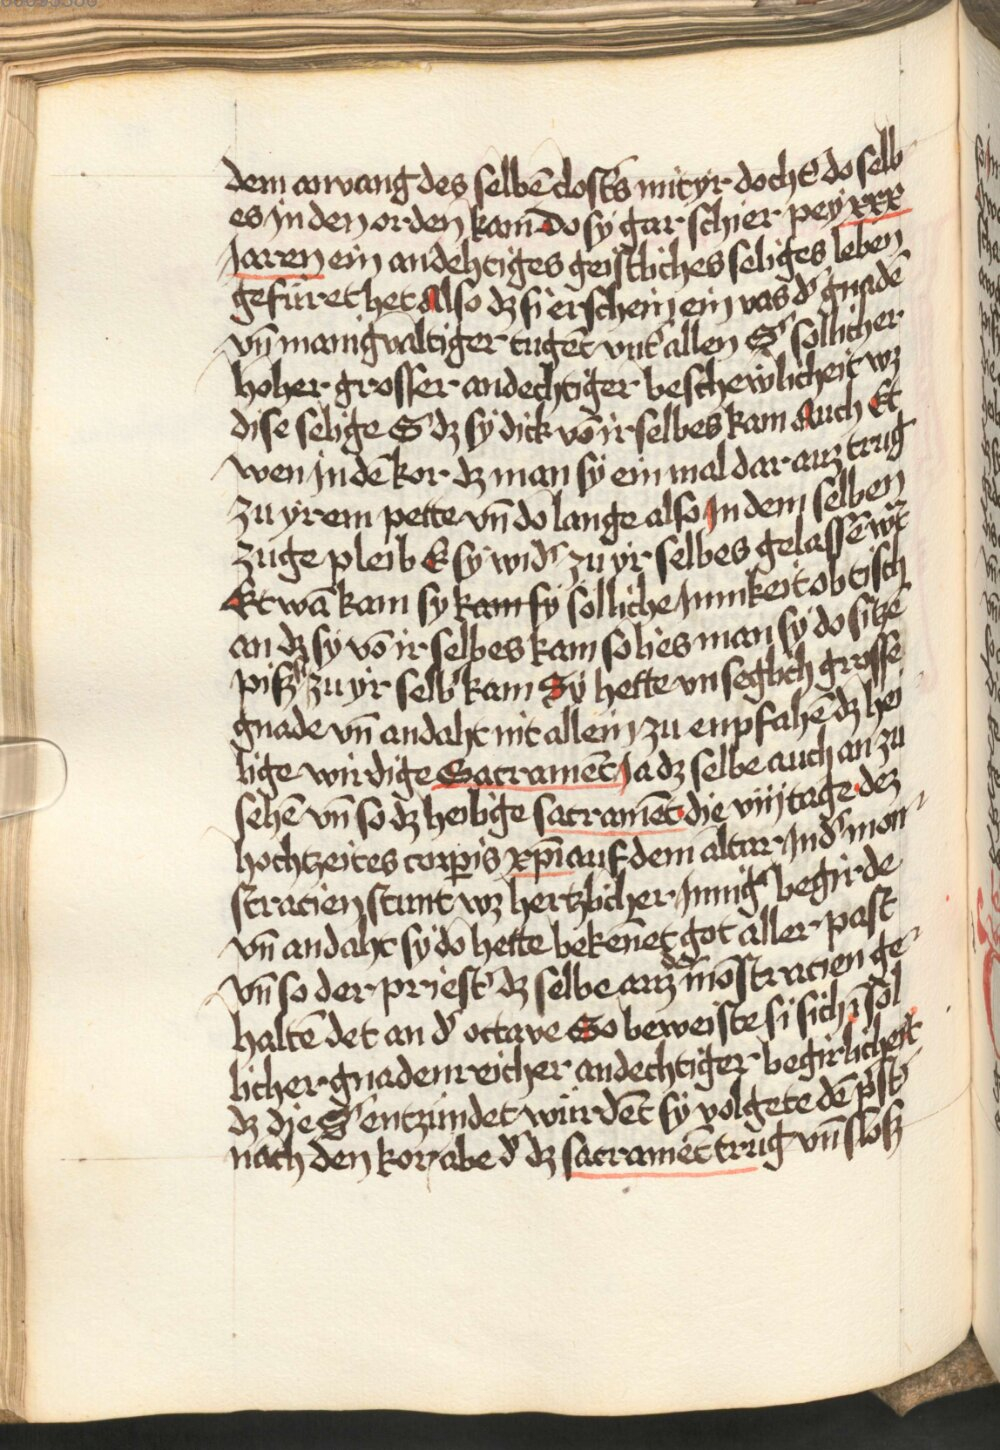 dem anvang des selbē closts mit yr docht̄ do selb
es in den orden kam do sy gar schier pey xxx
Jaren ein andehtiges geistliches seliges leben
gefüret het Also dz si erschein ein vas d' gnadē
vn̄ manigvaltiger tugēt vnt̄ allen S' sollicher
hoher grosser andechtiger beschewlicheit wz
dise selige S' dz sy dick vō ir selbes kam Auch Et
wen in dē kor dz man sy ein mal dar auz trug
zu yrem pette vn̄ do lange also In dem selben
zuge pleib E sy wid' zu yr selbes gelassē wt̄
Etwā kam sy kam sy solliche Innikeit ob tisch
an dz sy vō ir selbes kam so lies man sy do sitzē
pisz zu yr selb' kam Sy hette vnseglich grosse
gnade vn̄ andaht nit allein zu enpfahē dz hei
lige wirdige Sacramēt Ja dz selbe auch an zu
sehē vn̄ so dz heilige sacramēt die viij tage dez
hochtzeites corp̄is xp̄i auf dem altar In d' mon
stracien stunt wz hertzlicher Innig' begirde
vn̄ andaht sy do hette bekēnet got aller past
vn̄ so der priest' dz selbe auz d' mōstracien ge
haltē det an d' octave So beweiste si sich ī sol
licher gnadenreicher andechtiger begirlicheit
dz die S' entzündet würdēt sy volgete dē p'st'
nach den kor abe d' dz sacramēt trug vn̄ slosz